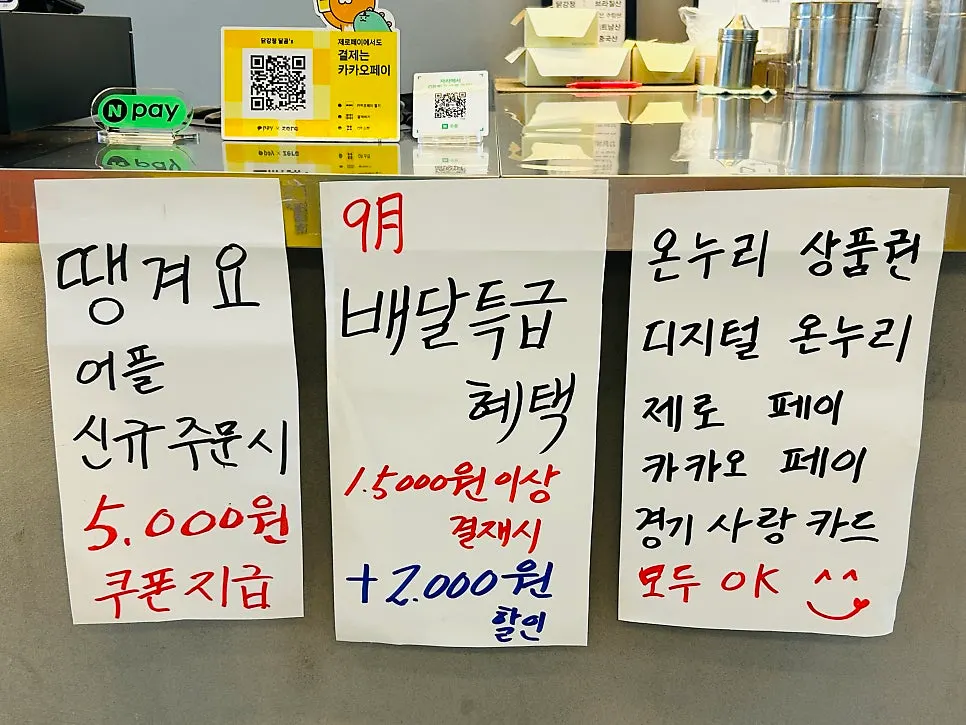 N pay
닭강정 달콤's
제로페이에서도
결제는
카카오페이
pay × zero
닭강정
브라질산
중국산
땡겨요
어플
신규주문시
5.000원
쿠폰지급
9月
배달특급
혜택
1.5000원이상
결재시
+2.000원
할인
온누리 상품권
디지털 온누리
제로 페이
카카오 페이
경기사랑카드
모두 OK ^^